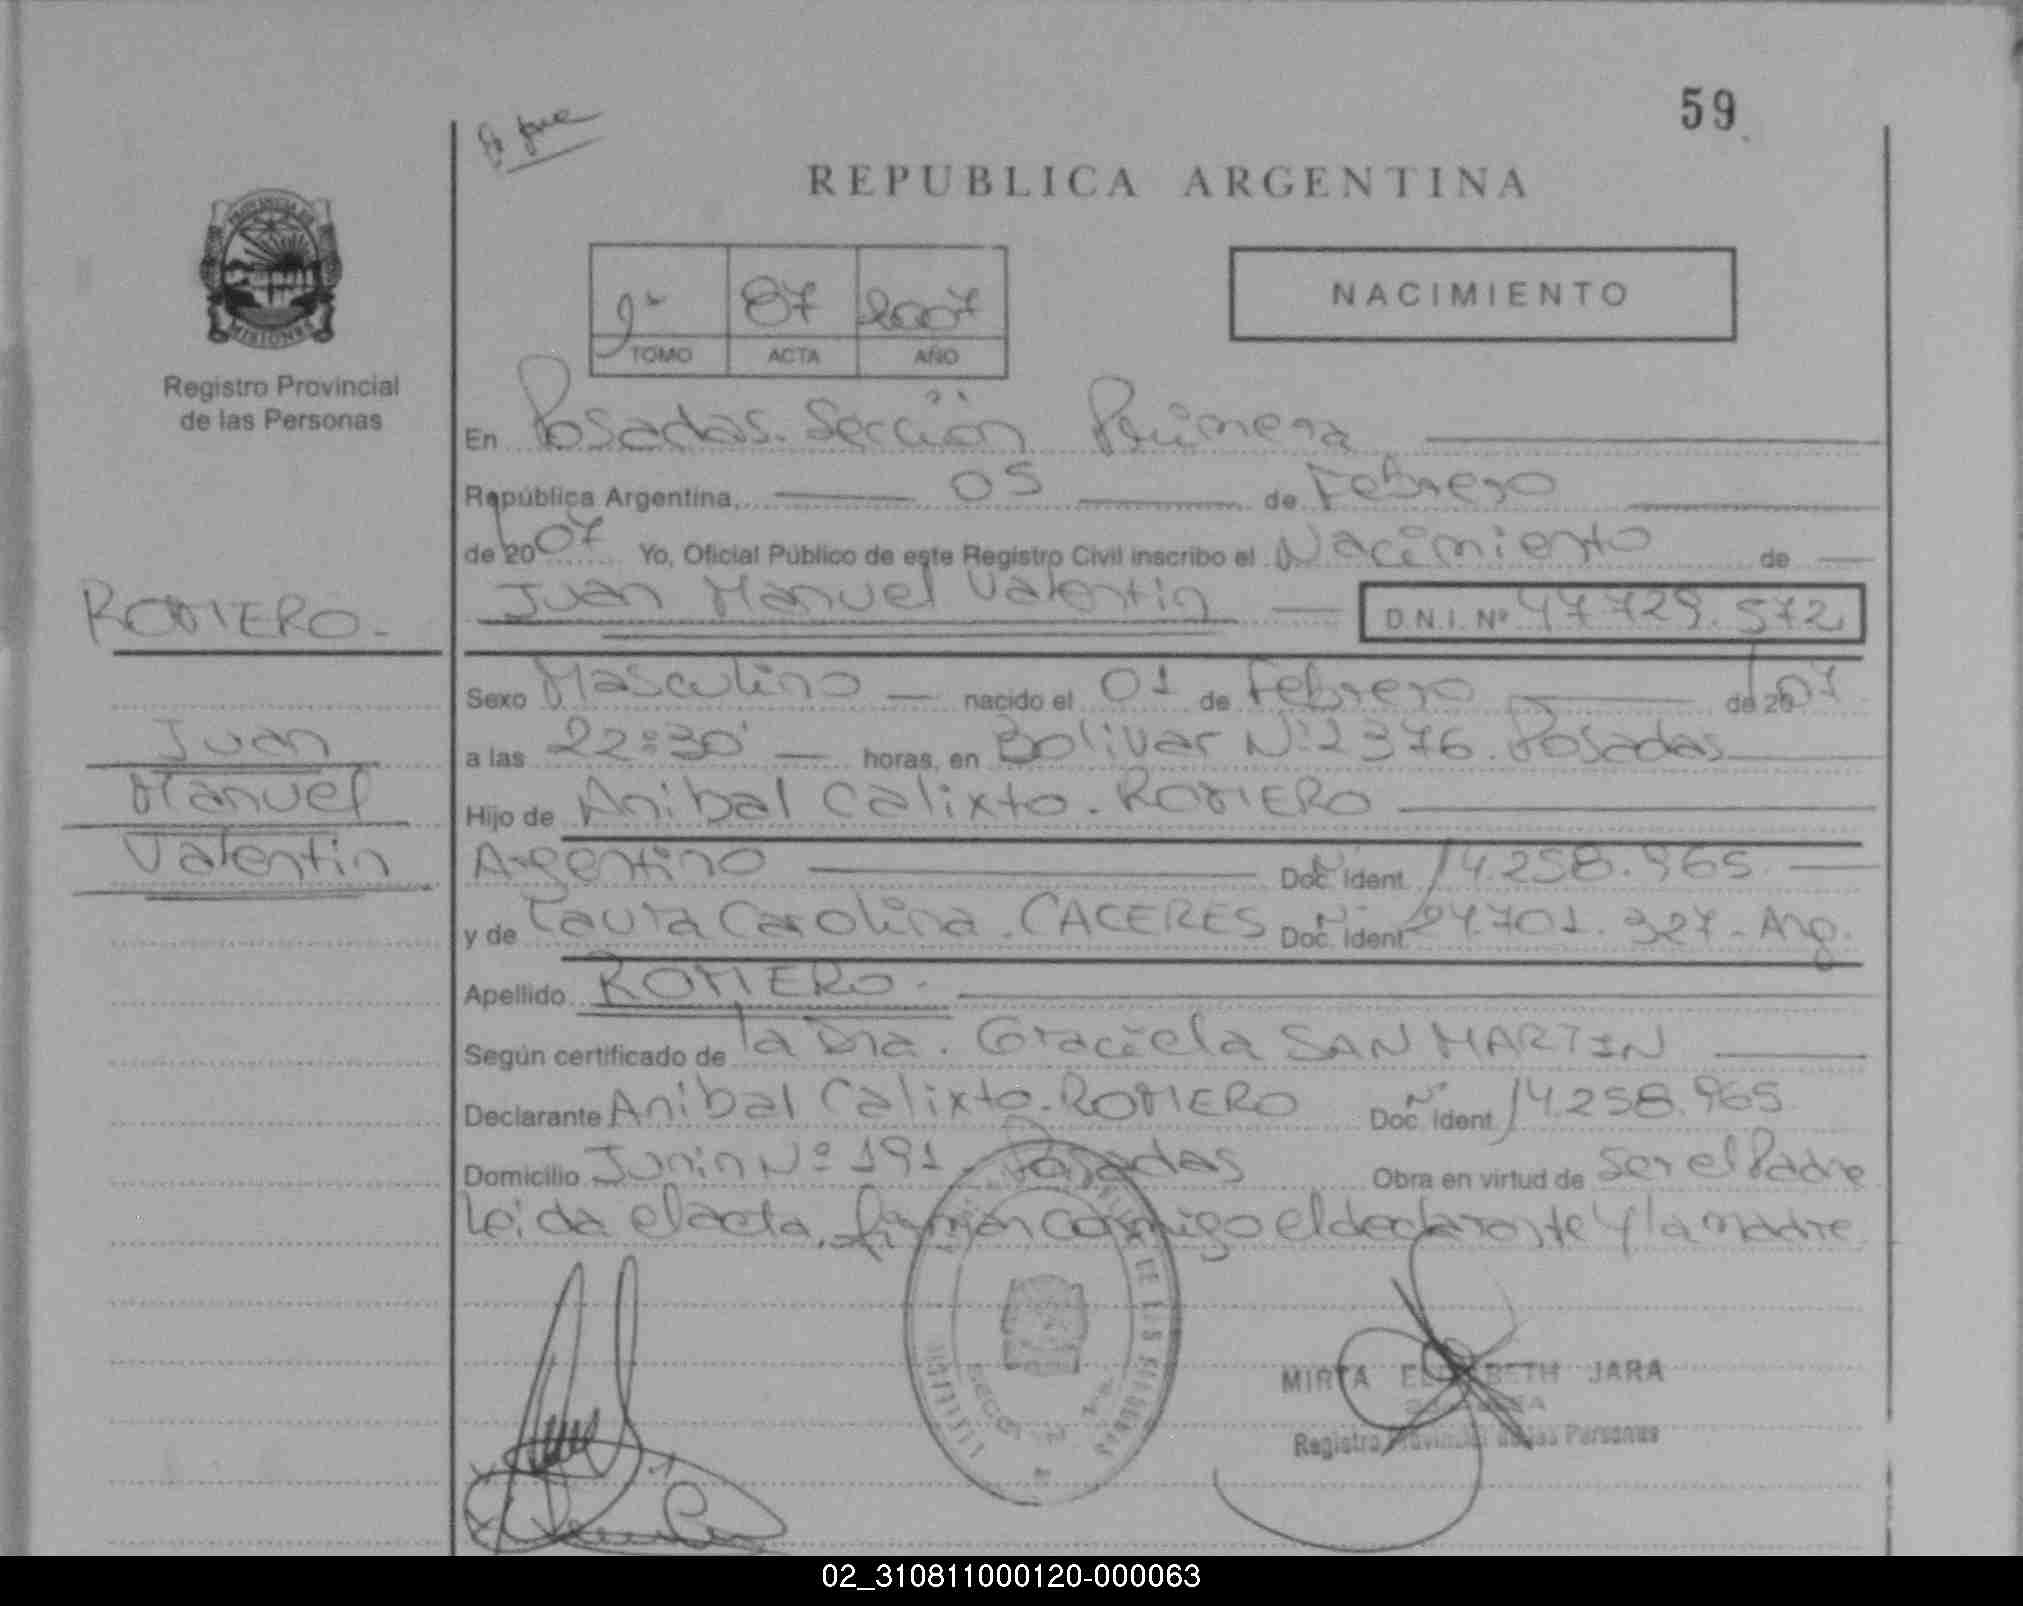 59
REPUBLICA ARGENTINA
PROVINCIA DE
MISIONES
Registro Provincial
de las Personas
87 2007
TOMO ACTA AÑO
NACIMIENTO
En Posadas. Sección Primera
República Argentina, 05 de Febrero
de 2007 Yo, Oficial Público de este Registro Civil inscribo el Nacimiento de
ROMERO.
Juan Manuel Valentin D.N.I. Nº 47729.572
Sexo Masculino nacido el 01 de Febrero de 2007
Juan
a las 22:30 horas, en Bolivar Nº 2376. Posadas
Manuel
Hijo de Anibal Calixto. ROMERO
Valentin
Argentino Doc. Ident. Nº 14.258.965.
y de Laura Carolina. CACERES Doc. Ident. Nº 24.701.327. Arg.
Apellido ROMERO.
Según certificado de la Dra. Graciela SAN MARTIN
Declarante Anibal Calixto. ROMERO Doc. Ident. Nº 14.258.965
Domicilio Junin Nº 191. Posadas Obra en virtud de ser el Padre
Leida el acta, firman conmigo el declarante y la madre
MIRTA ELIZABETH JARA
Registro Provincial de las Personas
02_310811000120-000063